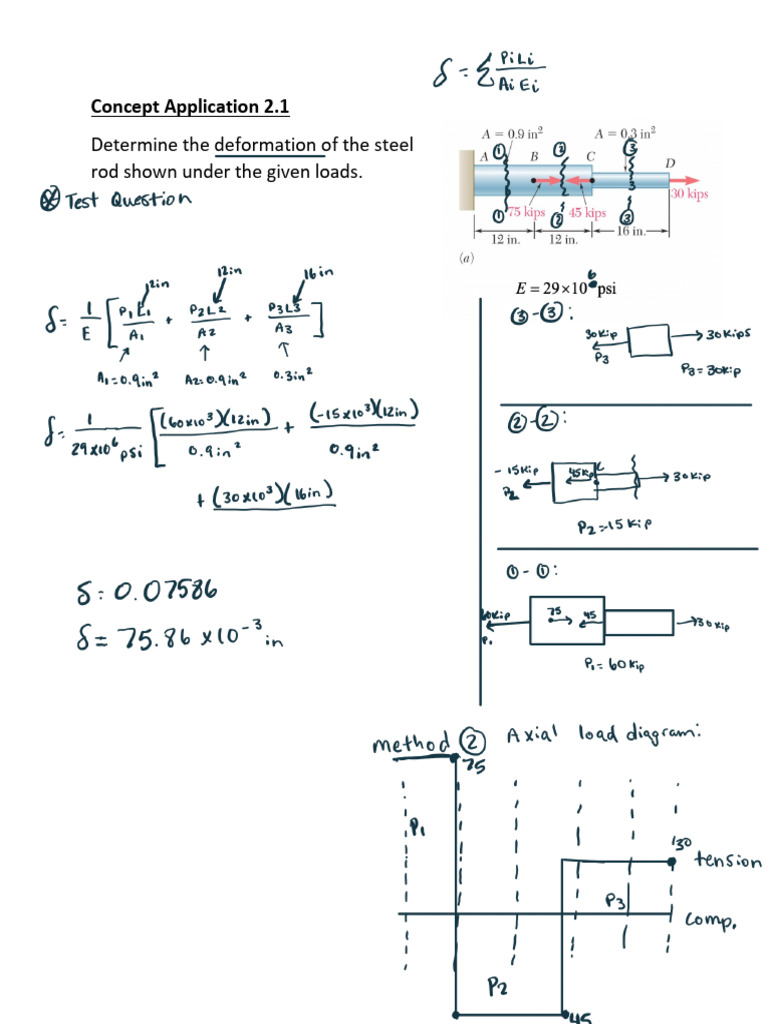 δ = Σ PiLi / AiEi
Concept Application 2.1
Determine the deformation of the steel
rod shown under the given loads.
Test Question
A = 0.9 in²
A = 0.3 in²
① ② ③
A B C D
30 kips
① 75 kips ② 45 kips ③
12 in. 12 in. 16 in.
(a)
E = 29×10⁶ psi
12in 16in
δ = 1/E [ P1E1/A1 + P2L2/A2 + P3L3/A3 ]
A1 = 0.9in² A2 = 0.9in² 0.3in²
δ = 1/29x10⁶ psi [ (60x10³)(12in)/0.9in² + (-15x10³)(12in)/0.9in²
+ (30x10³)(16in)
δ: 0.07586
δ = 75.86 x10⁻³ in
③-③:
30kip 30kips
P3
P3 = 30kip
②-②:
-15kip 45kp 30kip
P2
P2 = -15kip
①-①:
60kip 75 45 30kip
P1
P1 = 60kip
method ② Axial load diagram:
75
P1
130
tension
P3
comp.
P2
-45